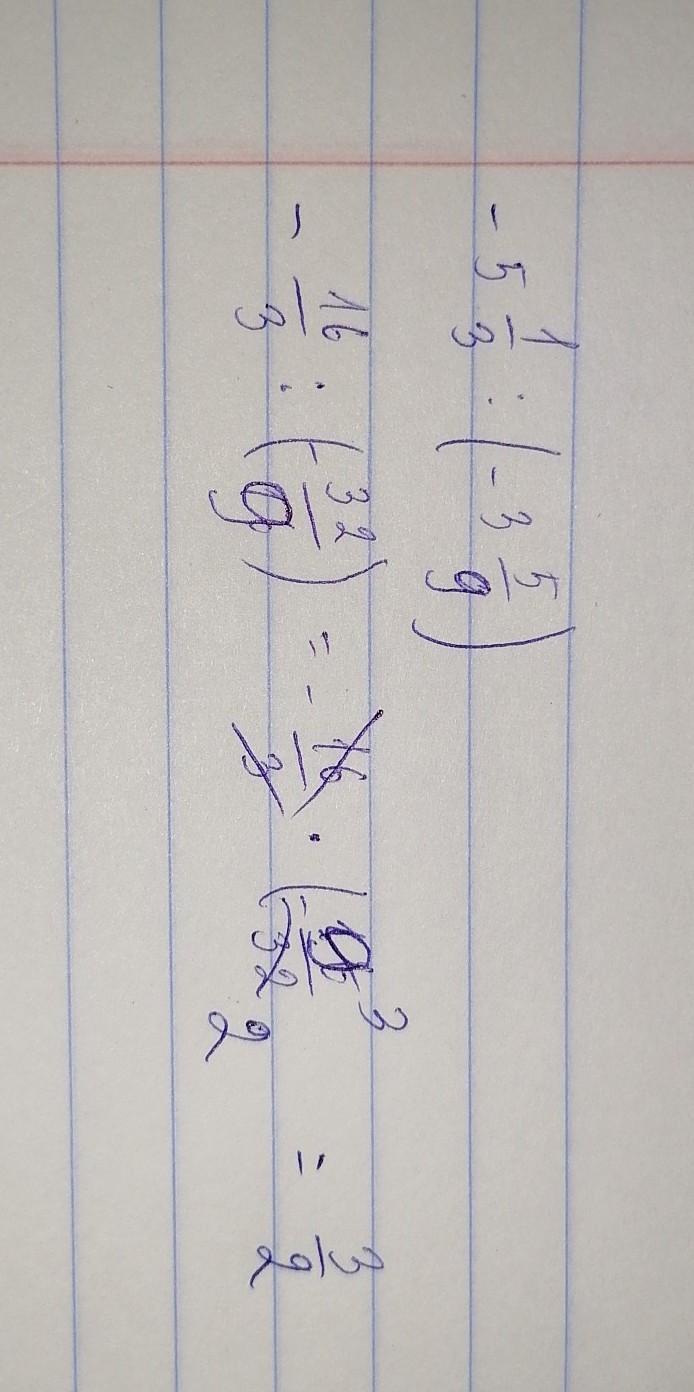 -5 1/3 : (-3 5/9)
- 16/3 : (-32/9) = - 16/3 · (-9/32 3 2 = 3/2